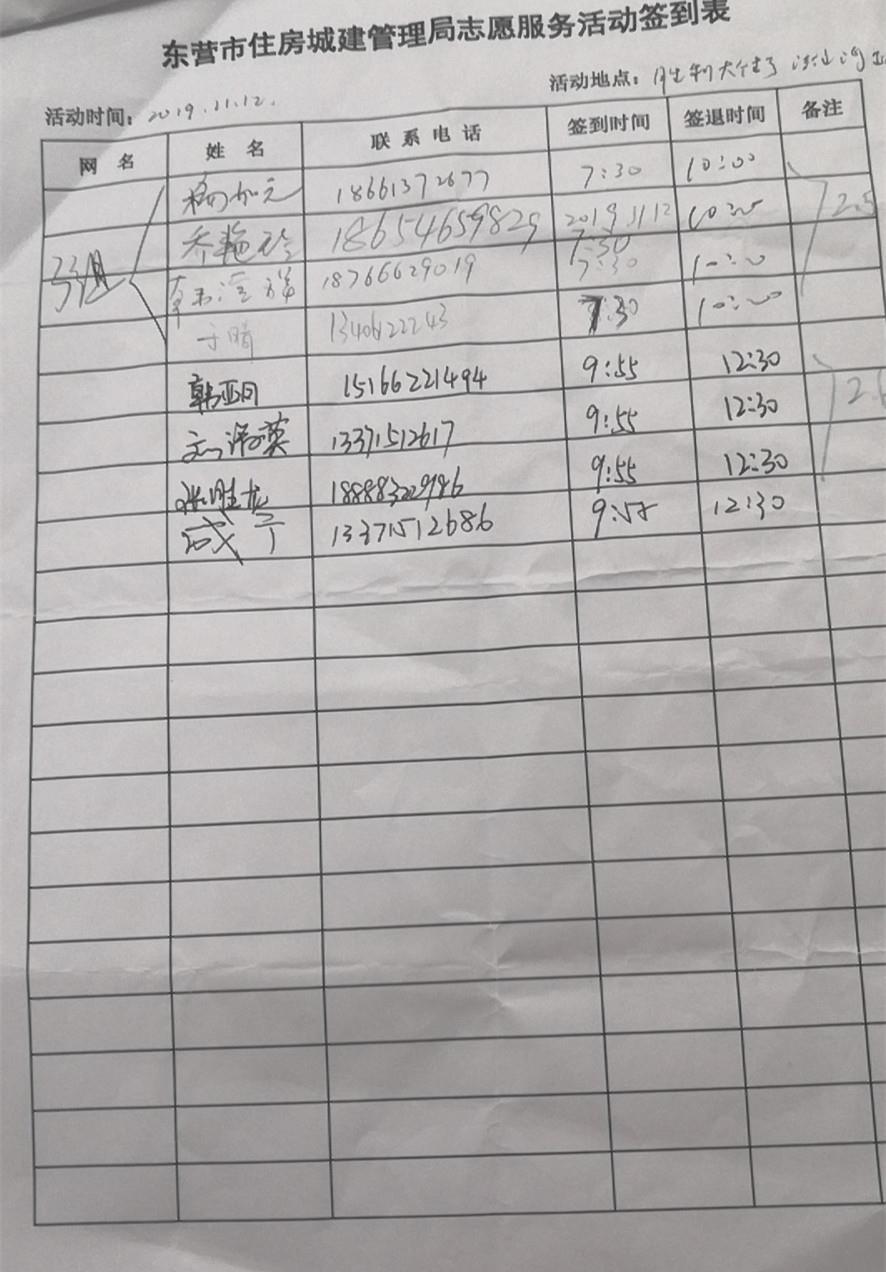 东营市住房城建管理局志愿服务活动签到表
活动时间：2019.11.12. 活动地点：胜利大街
网 名 姓 名 联 系 电 话 签到时间 签退时间 备注
18661372677 7:30 10:00
乔艳玲 18654659829 2019 11 12 7:30 10:00 2.5
18766629019 7:30 10:00
于晴 1340622243 7:30 10:00
韩亚同 15166221494 9:55 12:30
刘泽英 13371512617 9:55 12:30
张胜龙 18888322986 9:55 12:30
成宁 13371512686 9:55 12:30